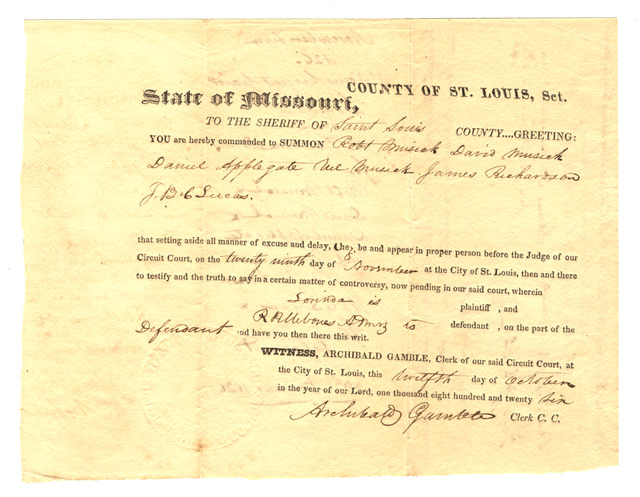 State of Missouri, COUNTY OF ST. LOUIS, Sct.
TO THE SHERIFF OF Saint Louis COUNTY....GREETING:
YOU are hereby commanded to SUMMON Robt Musick David Musick
Daniel Applegate Uel Musick James Richardson
J. B C Lucas.
that setting aside all manner of excuse and delay, they be and appear in proper person before the Judge of our
Circuit Court, on the twenty ninth day of November at the City of St. Louis, then and there
to testify and the truth to say in a certain matter of controversy, now pending in our said court, wherein
Lorinda is plaintiff, and
Admrx is defendant, on the part of the
Defendant and have you then there this writ.
WITNESS, ARCHIBALD GAMBLE, Clerk of our said Circuit Court, at
the City of St. Louis, this twelfth day of October
in the year of our Lord, one thousand eight hundred and twenty six
Archibald Gamble Clerk C. C.